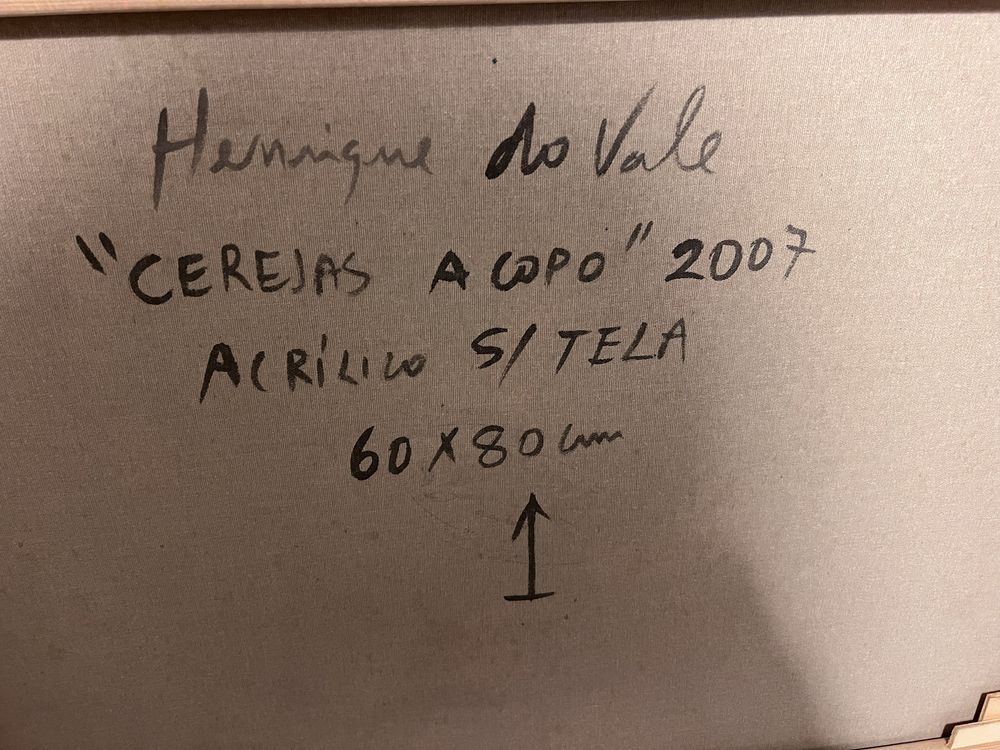 Henrique do Vale
"CEREJAS A COPO" 2007
ACRÍLICO S/ TELA
60 X 80 cm